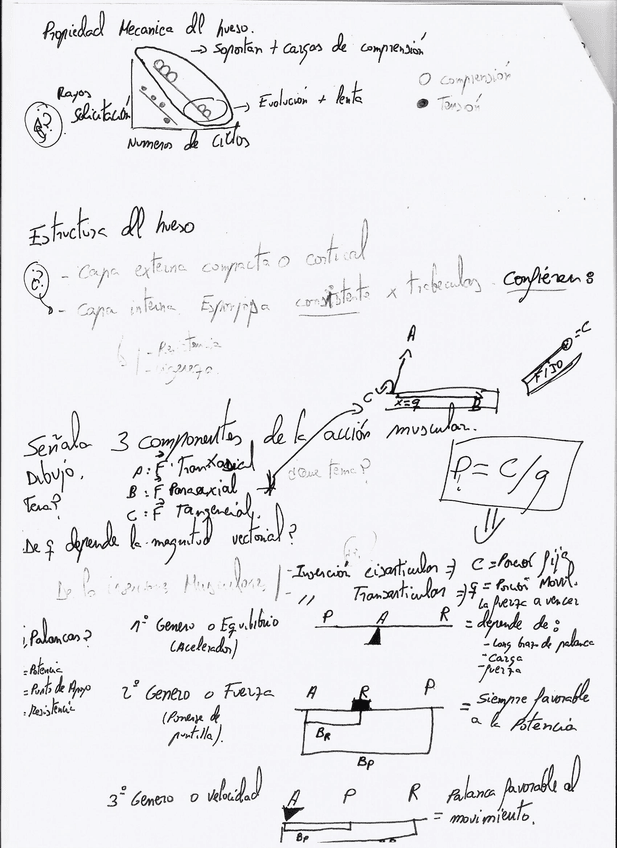 Propiedad Mecanica del hueso.
→ Soportan + cargas de comprensión
Rayos
Solicitación
→ Evolución + lenta
Numeros de Ciclos
○ comprensión
● Tensión
Estructura del hueso
- Capa externa compacta o cortical
- Capa interna Esponjosa consistente x trabeculas. Confieren:
A
C
X=q
B
=C
FIJO
Señala 3 componentes de la acción muscular.
Dibujo.
A: F Transaxial
B: F Paraaxial
C: F Tangencial.
¿que tema?
P = C/q
De q depende la magnitud vectorial?
De la insercion Muscular
- Inserción cisarticular ⇒ C = Porción fija
" Transarticular ⇒ q = Porción Movil.
la fuerza a vencer
¿Palancas?
= Potencia
= Punto de Apoyo
= Resistencia
1º Genero o Equilibrio
(Acelerador)
P A R
= depende de:
- Long brazo de palanca
- Carga
- fuerza
2º Genero o Fuerza
(Ponerse de puntilla).
A R P
BR
BP
= Siempre favorable
a la Potencia
3º Genero o velocidad
A P R
BP
= Palanca favorable al
movimiento.